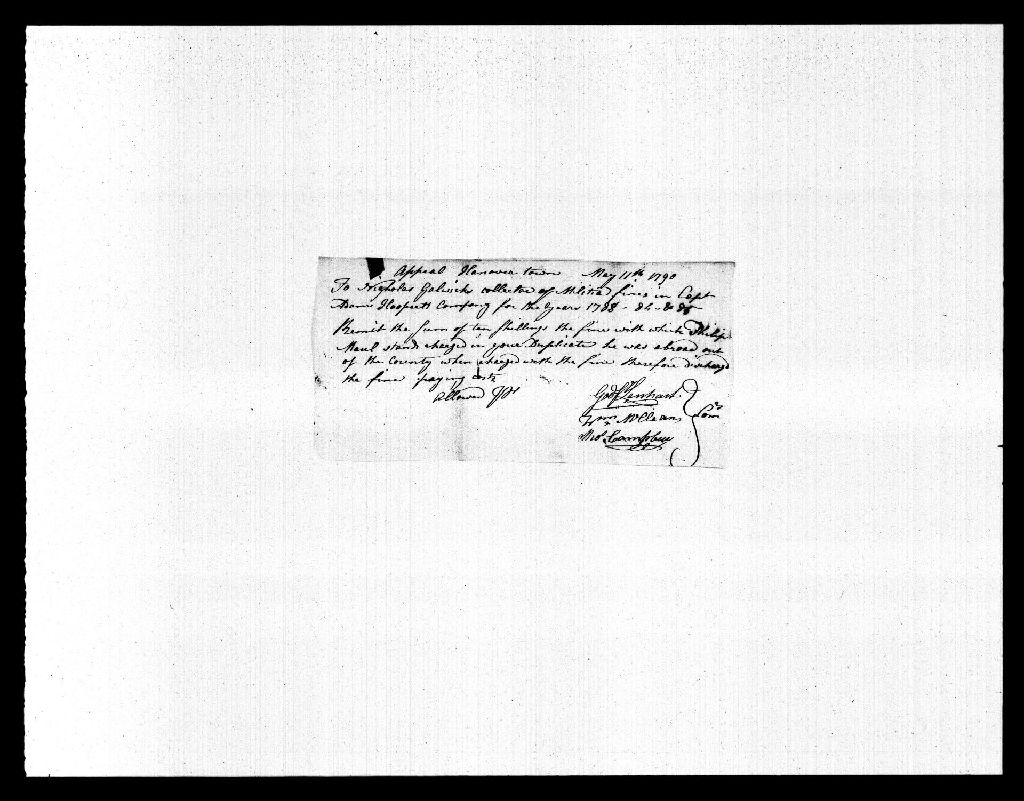 Appeal Hanover town May 11th 1790
To Nicholas Gelwicks collector of Militia fines in Capt
Adam Hoopert Company for the Years 1783 - 84 & 85
Remit the sum of ten shillings the fine with which Philip
Maul stands charged in your Duplicate he was abroad out
of the County when charged with the fine therefore discharge
the fine paying costs
allowed
Godf Lenhart
Wm McClean Com
Campbell